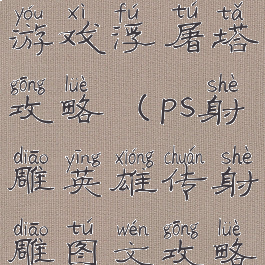 yóu xì fú tú tǎ
游戏浮屠塔
gōng lüè shè
攻略 （ps射
diāo yīng xióng chuán shè
雕英雄传射
diāo tú wén gōng lüè
雕图文攻略